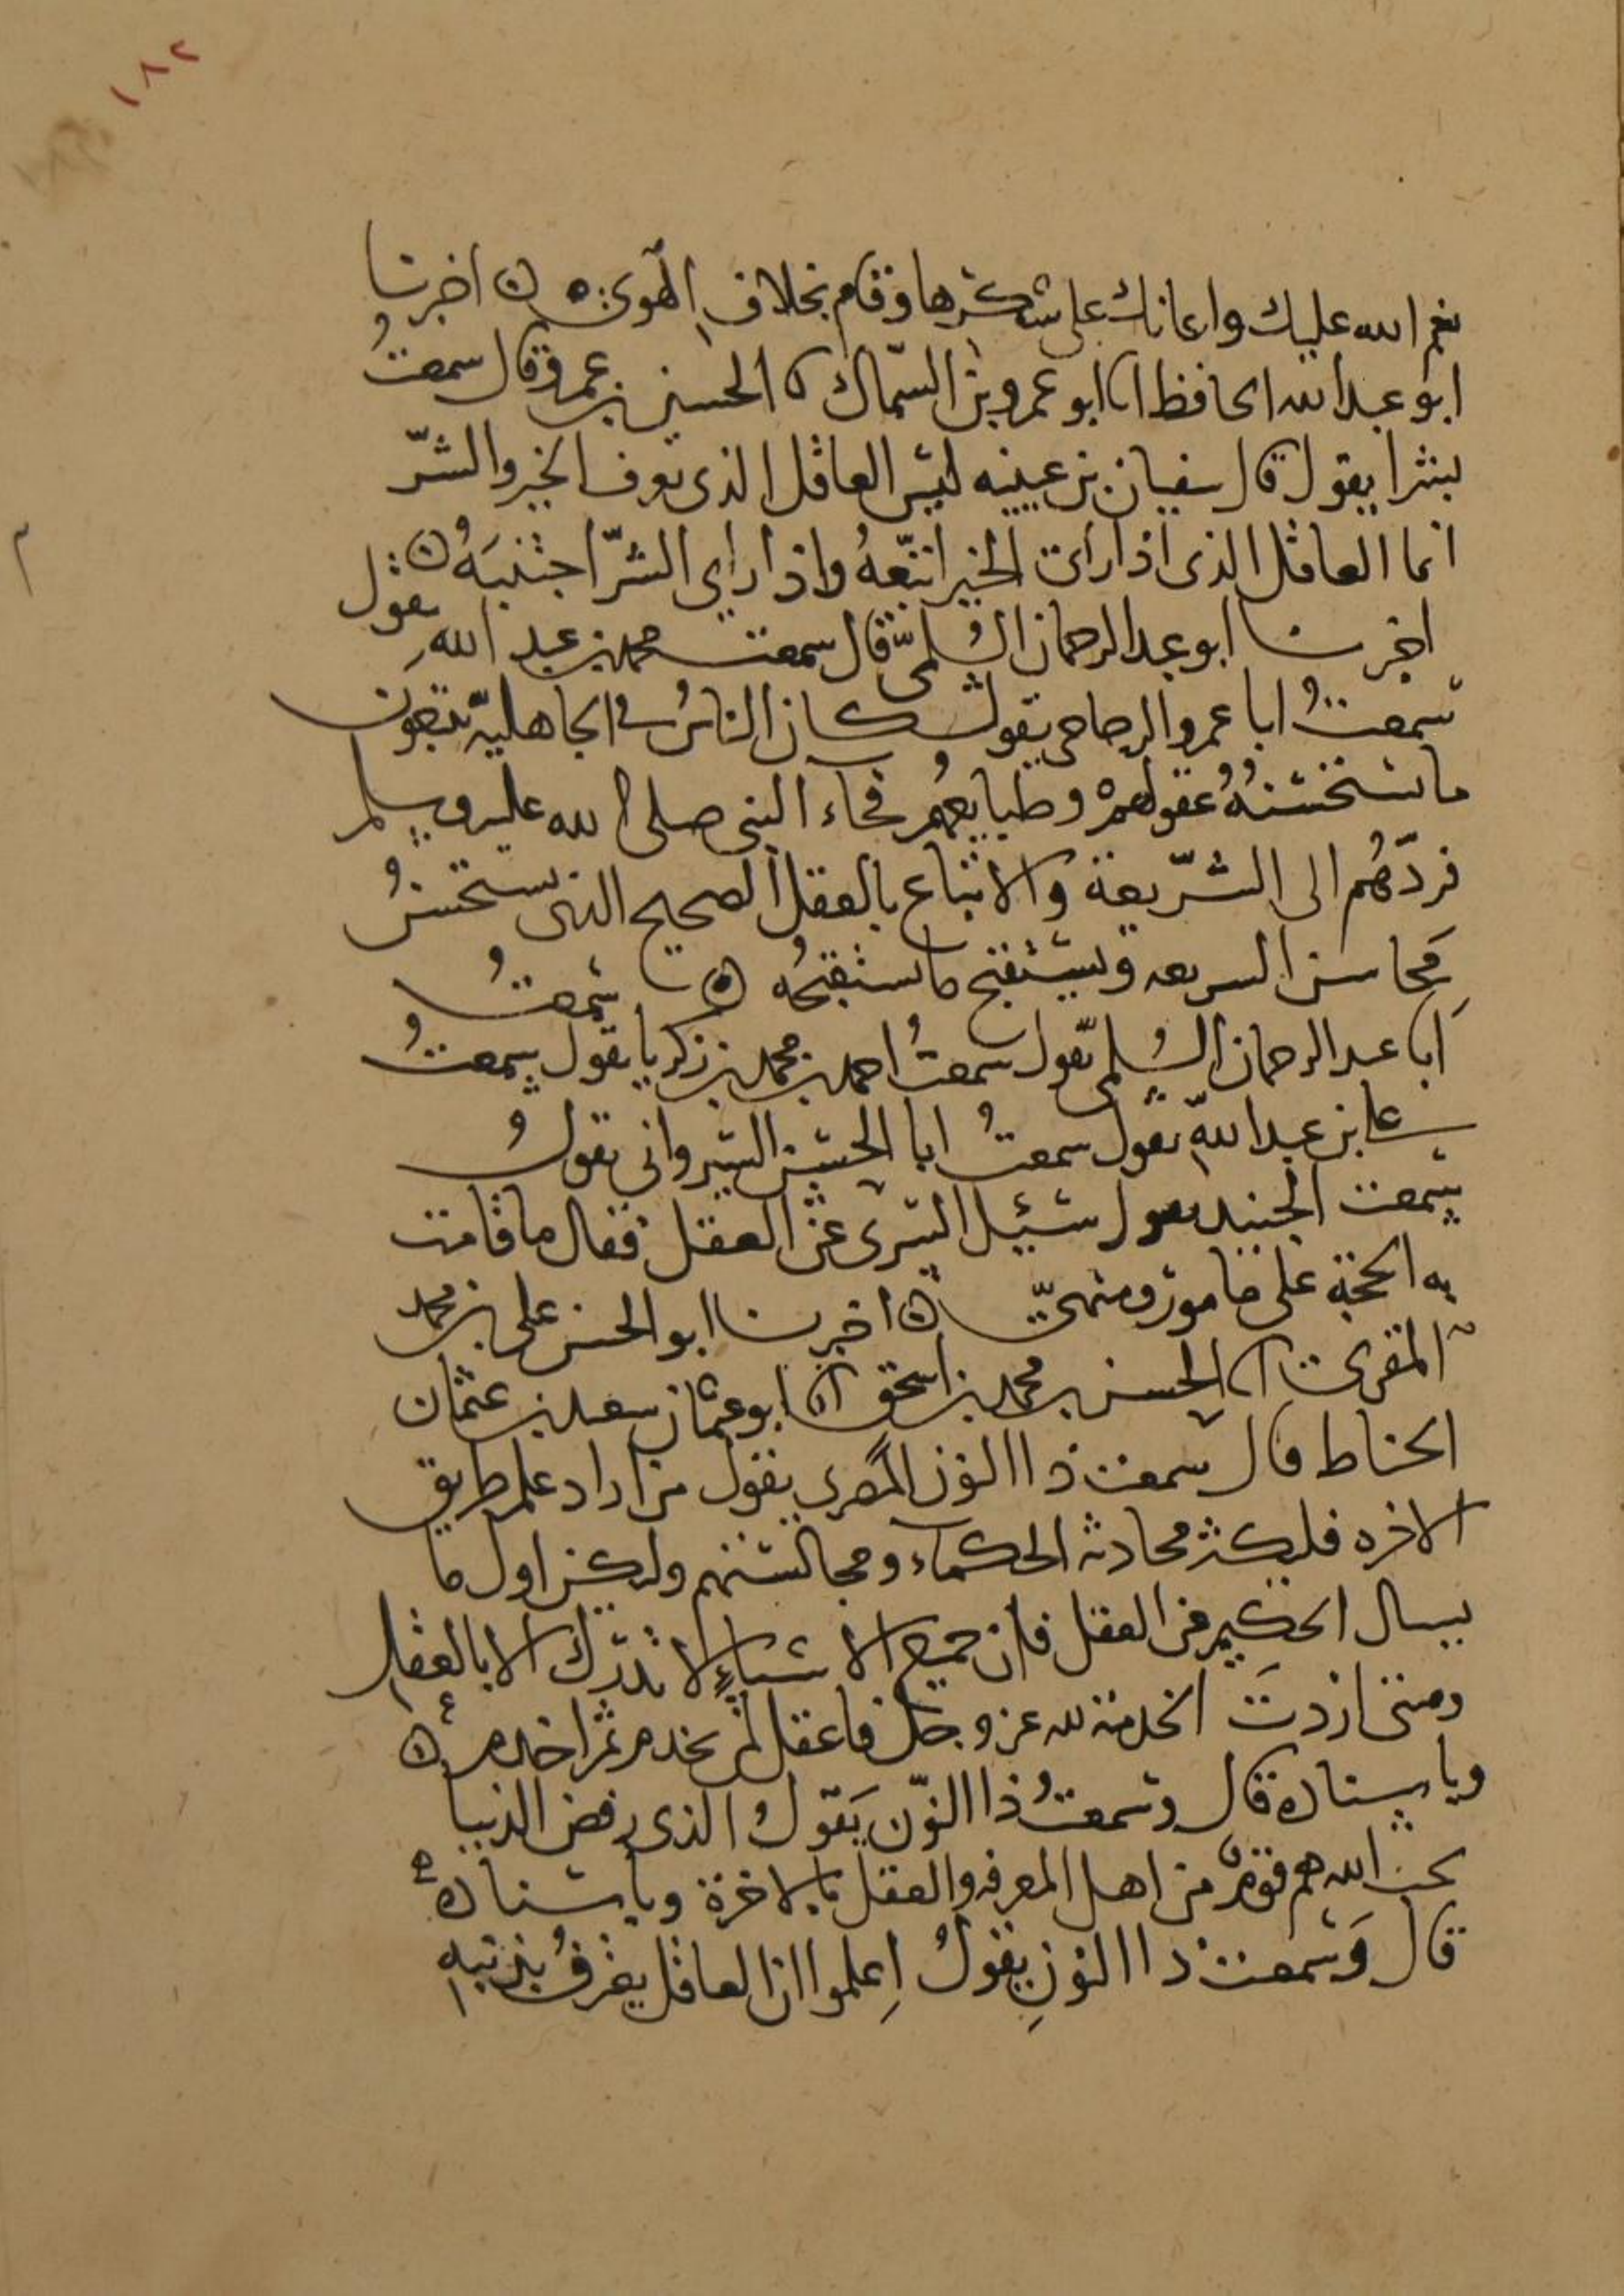 ١٨٢
نعم الله عليك واعانك على شكرها وقام بخلاف الهوى ه اخبرنا
ابو عبد الله الحافظ انا ابو عمرو بن السّماك نا الحسين بن عمرو قال سمعتُ
بشرا يقول قال سفيان بن عيينه ليس العاقل الذى يعرف الخير والشرّ
انما العاقل الذى اذا راى الخير اتبّعهُ واذا راي الشرّ اجتنبَهُ ه
اخبرنا ابو عبد الرحمان السُلمىّ قال سمعت محمد بن عبد الله يقول
سمعتُ ابا عمرو الزجاجى يقول كان الناسُ فى الجاهليّة يتبعون
ما تستحسنهُ عقولُهمْ وطبايعُهُم فجاء النبى صلى الله عليه وسلم
فردّهُم الى الشّريعة والاتباع بالعقل الصحيح الذى يستحسنُ
محاسن السريعه ويستقبح ما تستقبحُه ه سمعتُ
اَبا عبد الرحمان السُلمى يقول سمعتُ احمد بن محمد بن زكريا يقول سمعتُ
على بن عبد الله يقول سمعتُ ابا الحسين السيروانى يقولُ
سمعت الجنيد يقول سئيل السرى عن العقل فقال ما قامت
به الحجّة على مامور ومنهىّ ه اخبرنا ابو الحسن على بن محمد
المقرى انا الحسن بن محمد بن اسحق نا ابو عثمان سعيد بن عثمان
الحناط قال سمعت ذا النون المصرى يقول من اراد علم طريق
الاخره فليكثر محادثه الحكماء ومجالستهم وليكن اول ما
يسال الحكيم عن العقل فان جميع الاشياءِ لا تدرك الا بالعقل
ومتى اردتَ الخدمة لله عز وجل فاعقل لم تخدم ثم اخدم ه
وباسناده قال وسمعتُ ذا النّون يَقولُ الذى رفض الدنيا
بحب الله هم قومٌ من اهل المعرفه والعقل بالاخرة وباسناده
قال وَسمعت ذا النونِ يقولُ اِعلموا ان العاقل يعترفُ بذنبه